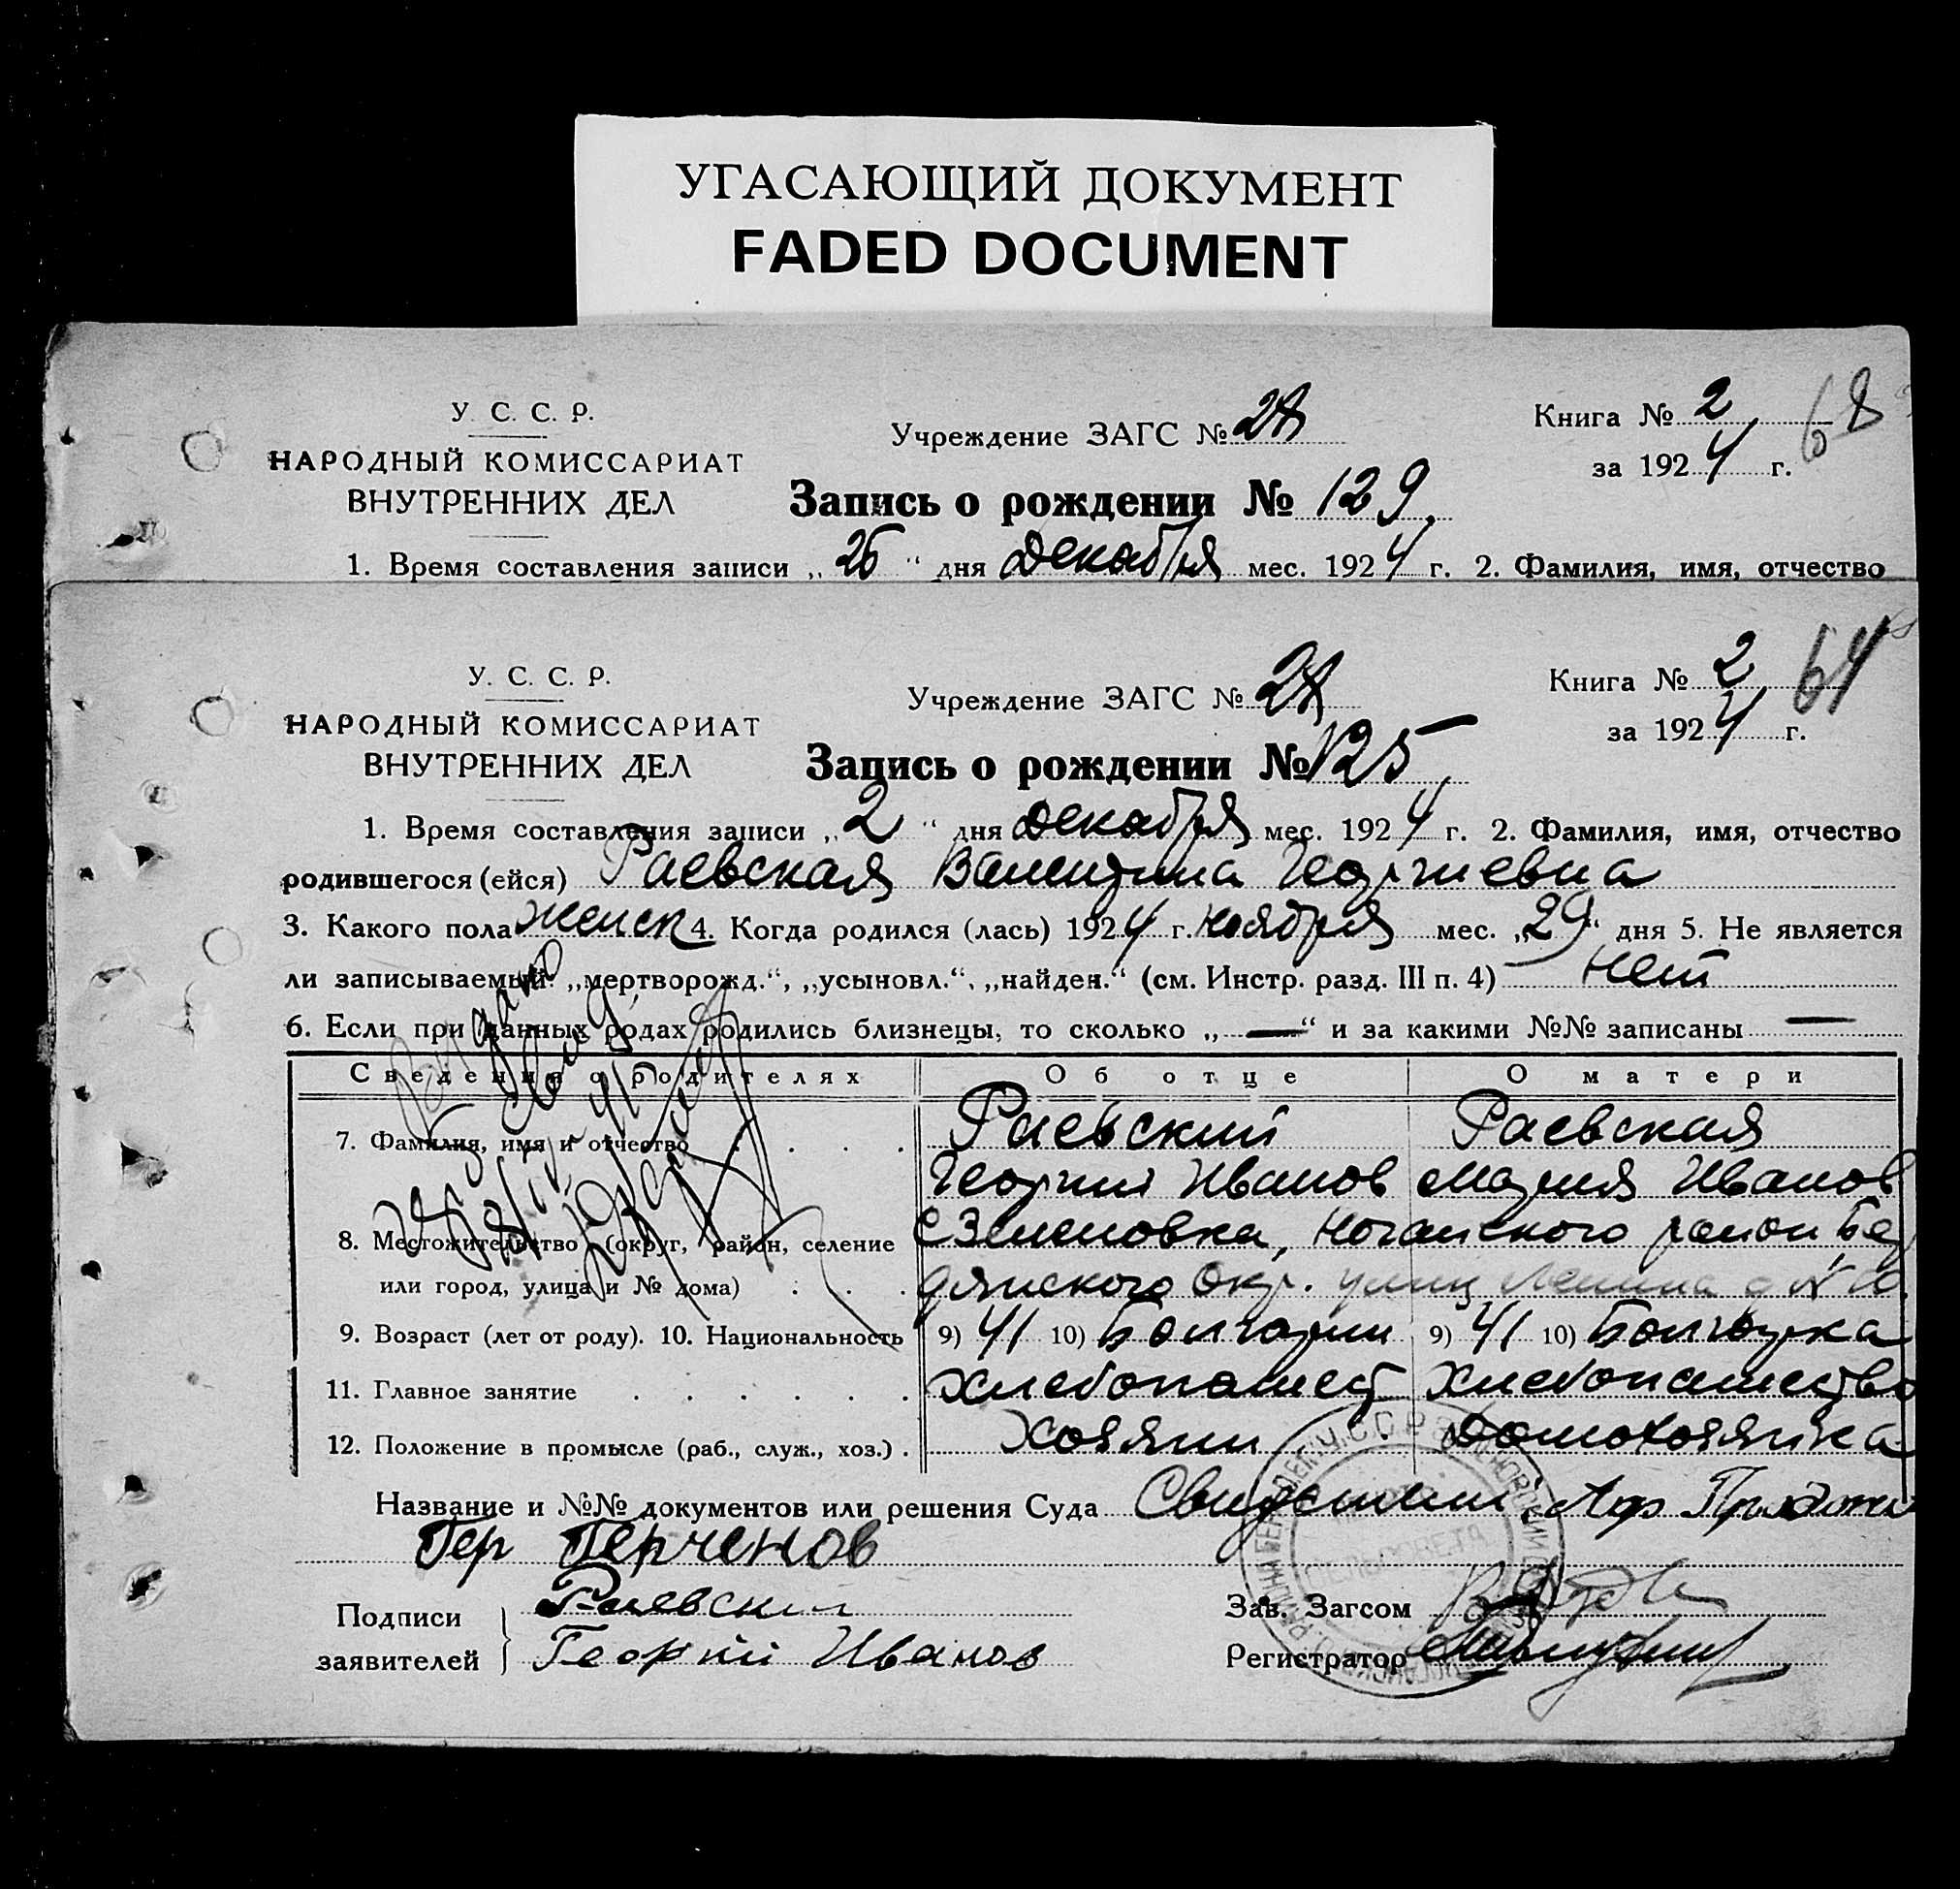 УГАСАЮЩИЙ ДОКУМЕНТ
FADED DOCUMENT
У. С. С. Р.
НАРОДНЫЙ КОМИССАРИАТ
ВНУТРЕННИХ ДЕЛ
Учреждение ЗАГС № 28
Книга № 2
68
за 1924 г.
Запись о рождении № 129.
1. Время составления записи „26“ дня Декабря мес. 1924 г. 2. Фамилия, имя, отчество
У. С. С. Р.
НАРОДНЫЙ КОМИССАРИАТ
ВНУТРЕННИХ ДЕЛ
Учреждение ЗАГС № 28
Книга № 2
64
за 1924 г.
Запись о рождении № 125
1. Время составления записи „2“ дня Декабря мес. 1924 г. 2. Фамилия, имя, отчество
родившегося (ейся) Раевская Валентина Георгиевна
3. Какого пола женск 4. Когда родился (лась) 1924 г. ноября мес. „29“ дня 5. Не является
ли записываемый: „мертворожд.“, „усыновл.“, „найден.“ (см. Инстр. разд. III п. 4) нет
6. Если при данных родах родились близнецы, то сколько „—“ и за какими №№ записаны —
Сведения о родителях Об отце О матери
7. Фамилия, имя и отчество Раевский Раевская
Георгий Иванов Мария Иванов
8. Местожительство (округ, район, селение с Зеленовка, Ногайского район Бер
или город, улица и № дома) дянского Окр. улиц Ленина д №
9. Возраст (лет от роду). 10. Национальность 9) 41 10) Болгарин 9) 41 10) Болгарка
11. Главное занятие Хлебопашест Хлебопашество
12. Положение в промысле (раб., служ., хоз.) Хозяин Домохозяйка
Название и №№ документов или решения Суда Свидетели
Гер Перченов
Подписи заявителей Раевский
Георгий Иванов
Зав. Загсом
Регистратор